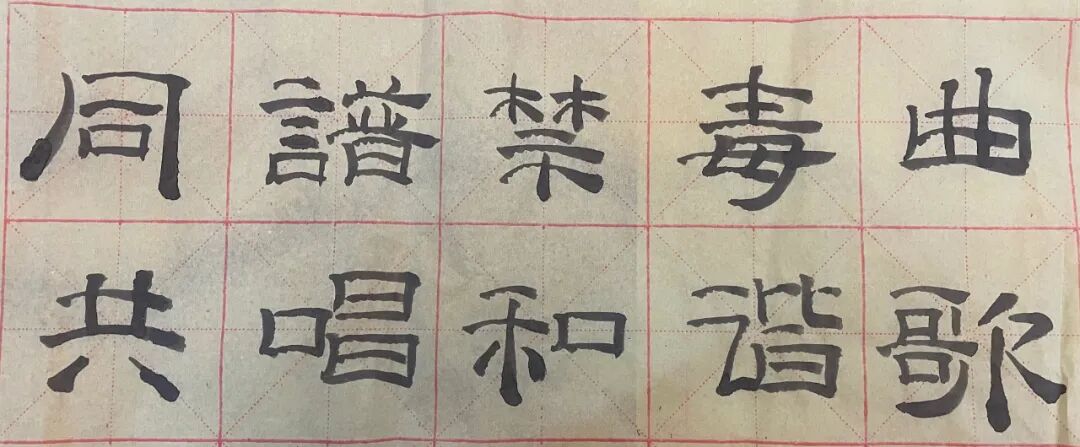 同譜禁毒曲
共唱和谐歌